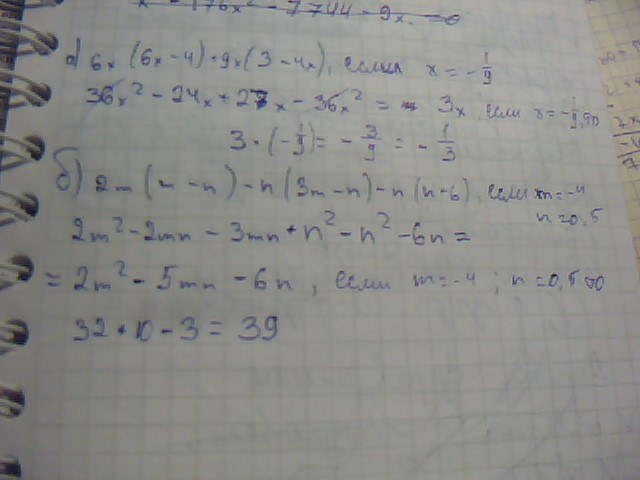 x - 176x² - 7744 - 9x = 0
а) 6x (6x - 4) + 9x (3 - 4x), если x = - 1/9
36x² - 24x + 27x - 36x² = 3x, если x = - 1/9, то
3 · (- 1/9) = - 3/9 = - 1/3
б) 2m (m - n) - n (3m - n) - n (n + 6), если m = -4
n = 0,5
2m² - 2mn - 3mn + n² - n² - 6n =
= 2m² - 5mn - 6n, если m = -4 ; n = 0,5 то
32 + 10 - 3 = 39